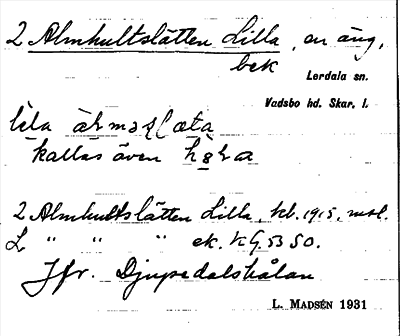 2 Almhultslätten Lilla, en äng,
bek
Lerdala sn.
Vadsbo hd. Skar. l.
lila
kallas även
2 Almhultslätten Lilla, kb. 1915,
L " " " ek. KG. 53 50.
Jfr. Djupedalskålan
L. MADSÉN 1931